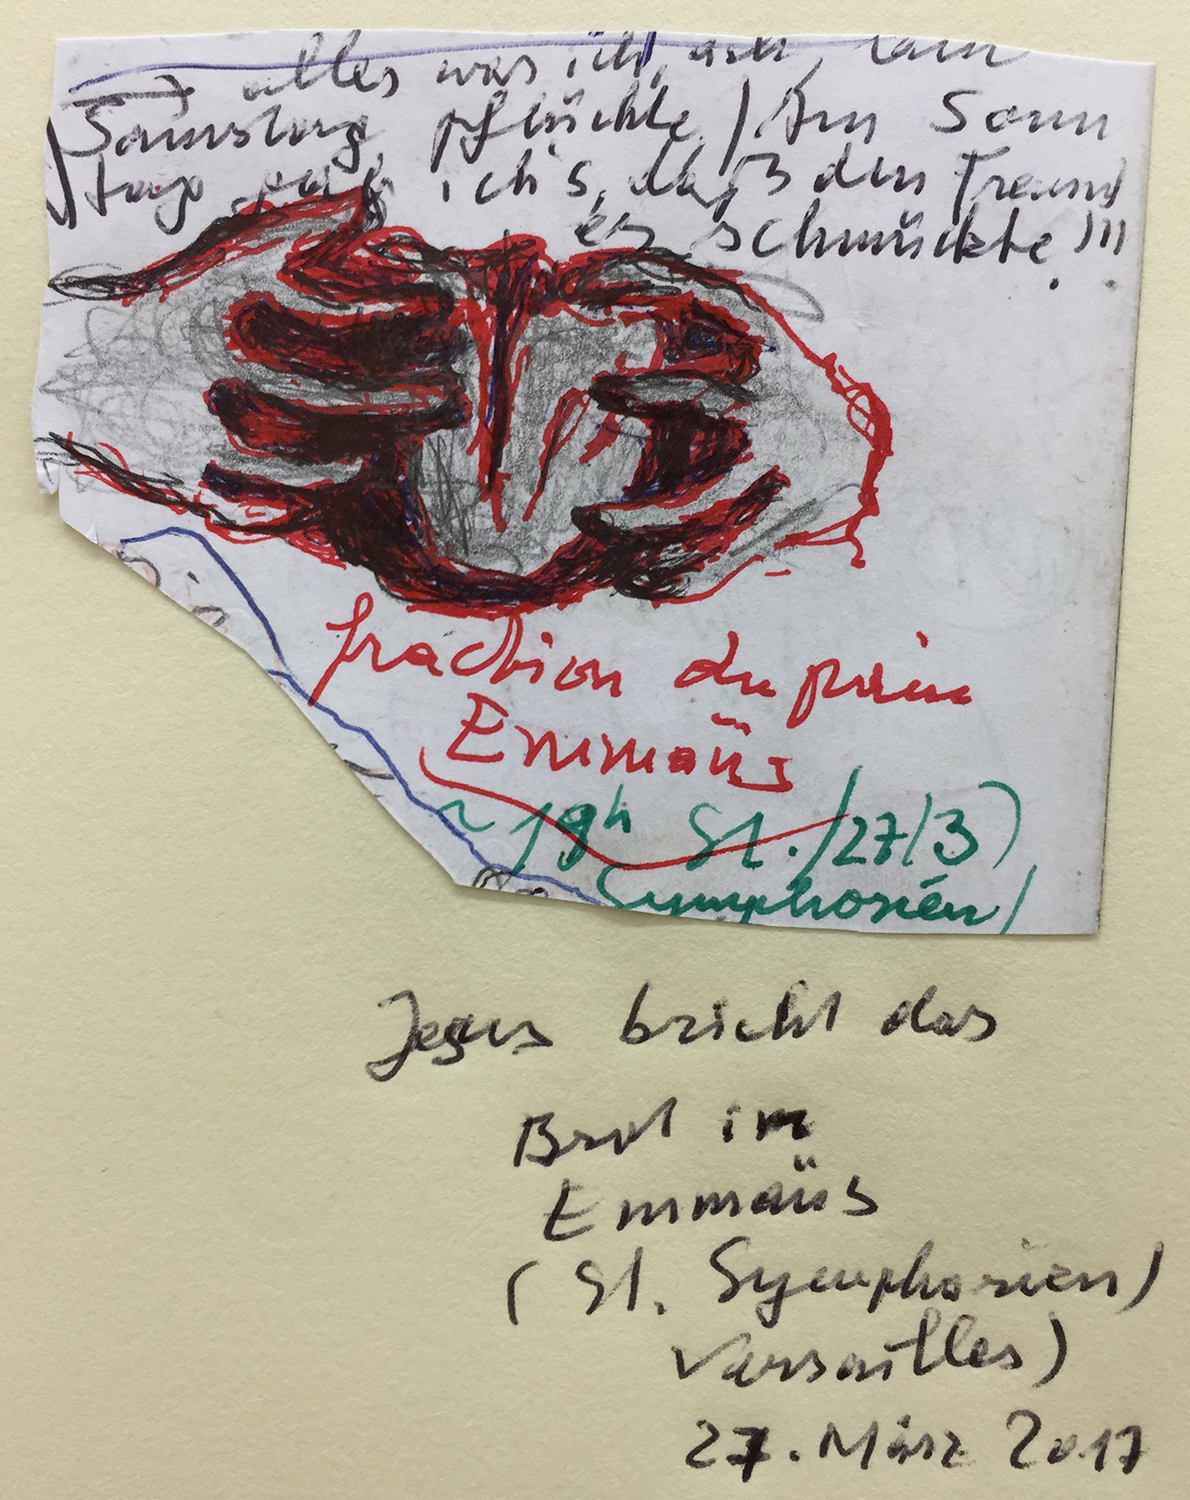 alles was ich, ach,
Samstag pflückte / Am Sonn
tag gab ich's, daß den Freund
es schmückte !!!
fraction du pain
Emmaüs
~ 19h St. /27/3)
Symphorien/
Jesus bricht das
Brot im
Emmaüs
(St. Symphorien)
Versailles)
27. März 2017